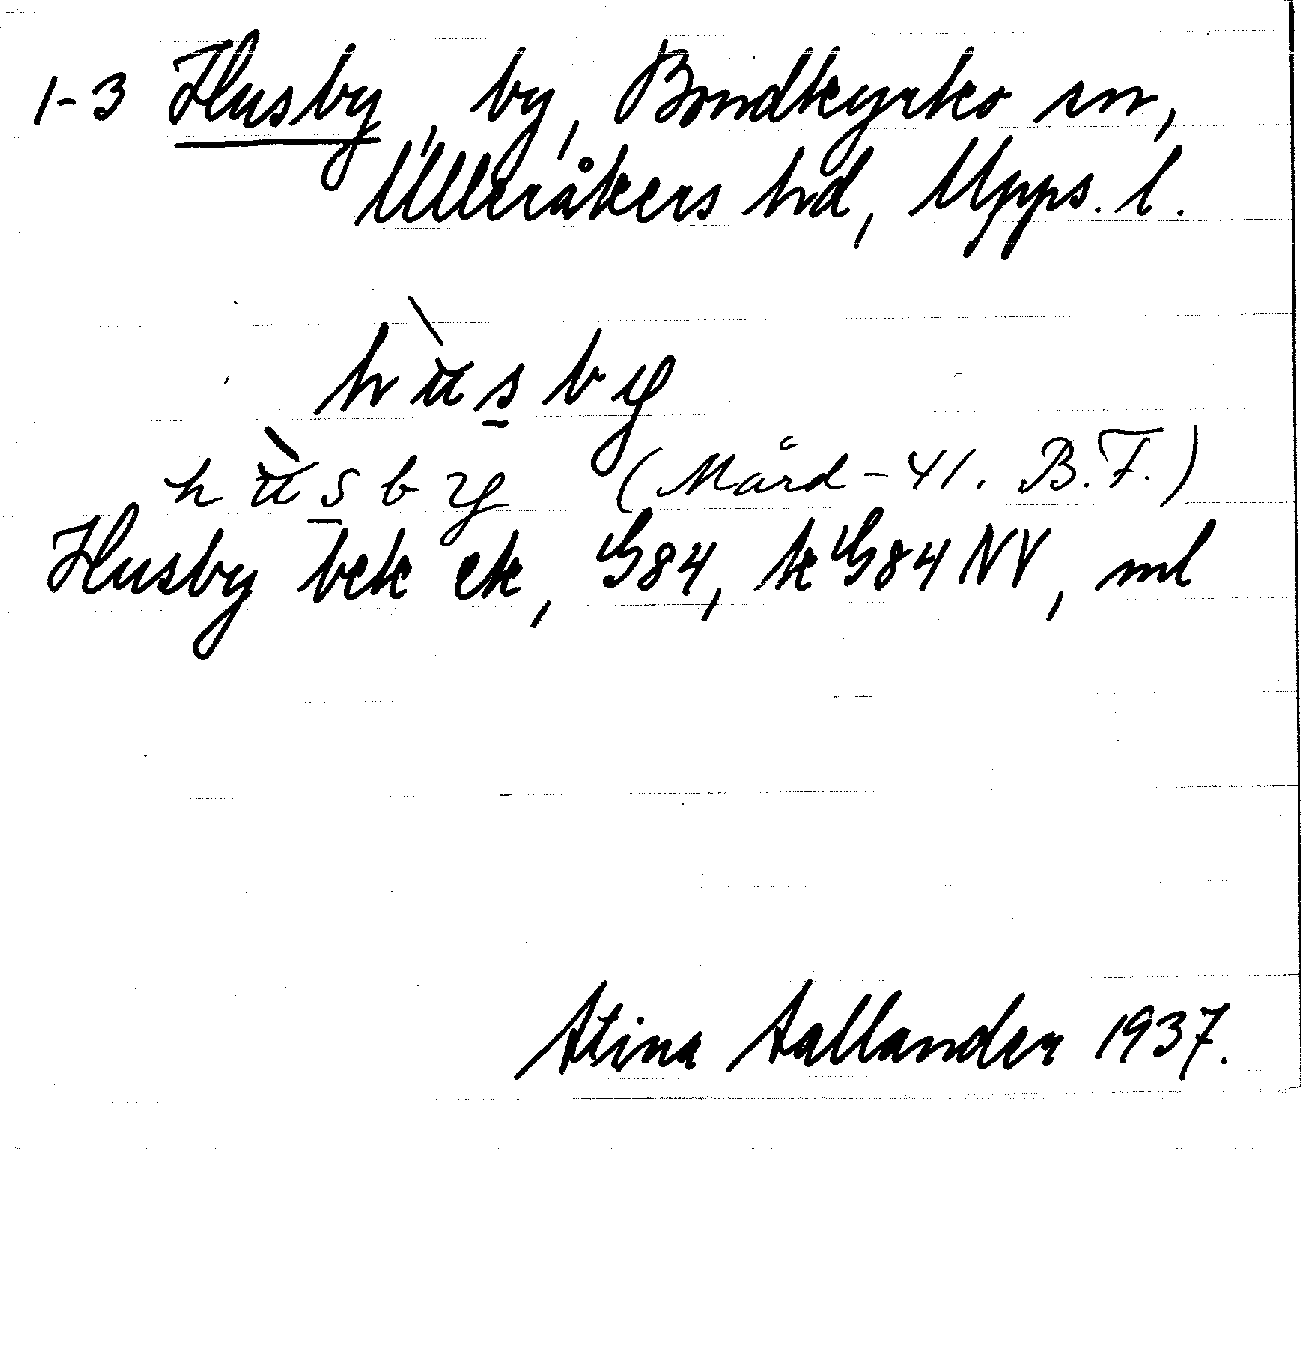 1-3 Husby, by, Bondkyrko sn,
Ulleråkers hd, Upps. l.
hùsby
hùsby (Mård-41. B.F.)
Husby bek ek, G84, kG84NV, ml
Stina Sallander 1937.